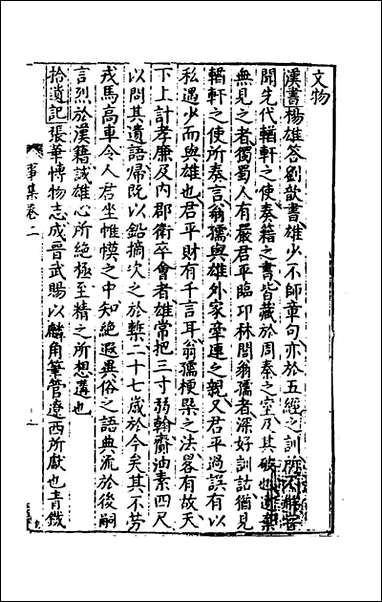 文物
漢書楊雄答劉歆書雄少不師章句亦於五經之訓所不解嘗
聞先代輶軒之使奏籍之書皆藏於周秦之室及其破也遺棄
無見之者獨蜀人有嚴君平臨邛林閭翁孺者深好訓詁猶見
輶軒之使所奏言翁孺與雄外家牽連之親又君平過誤有以
私遇少而與雄也君平財有千言耳翁孺梗槩之法畧有故天
下上計孝廉及內郡衛卒會者雄常把三寸弱翰齎油素四尺
以問其遺語歸既以鉛摘次之於槧二十七歲於今矣其不勞
戎馬高車令人君坐帷幙之中知絕遐異俗之語典流於後嗣
言烈於漢籍誠雄心所絕極至精之所想遘也
拾遺記張華博物志成晉武賜以麟角筆管遼西所獻也青鐵
事集卷二